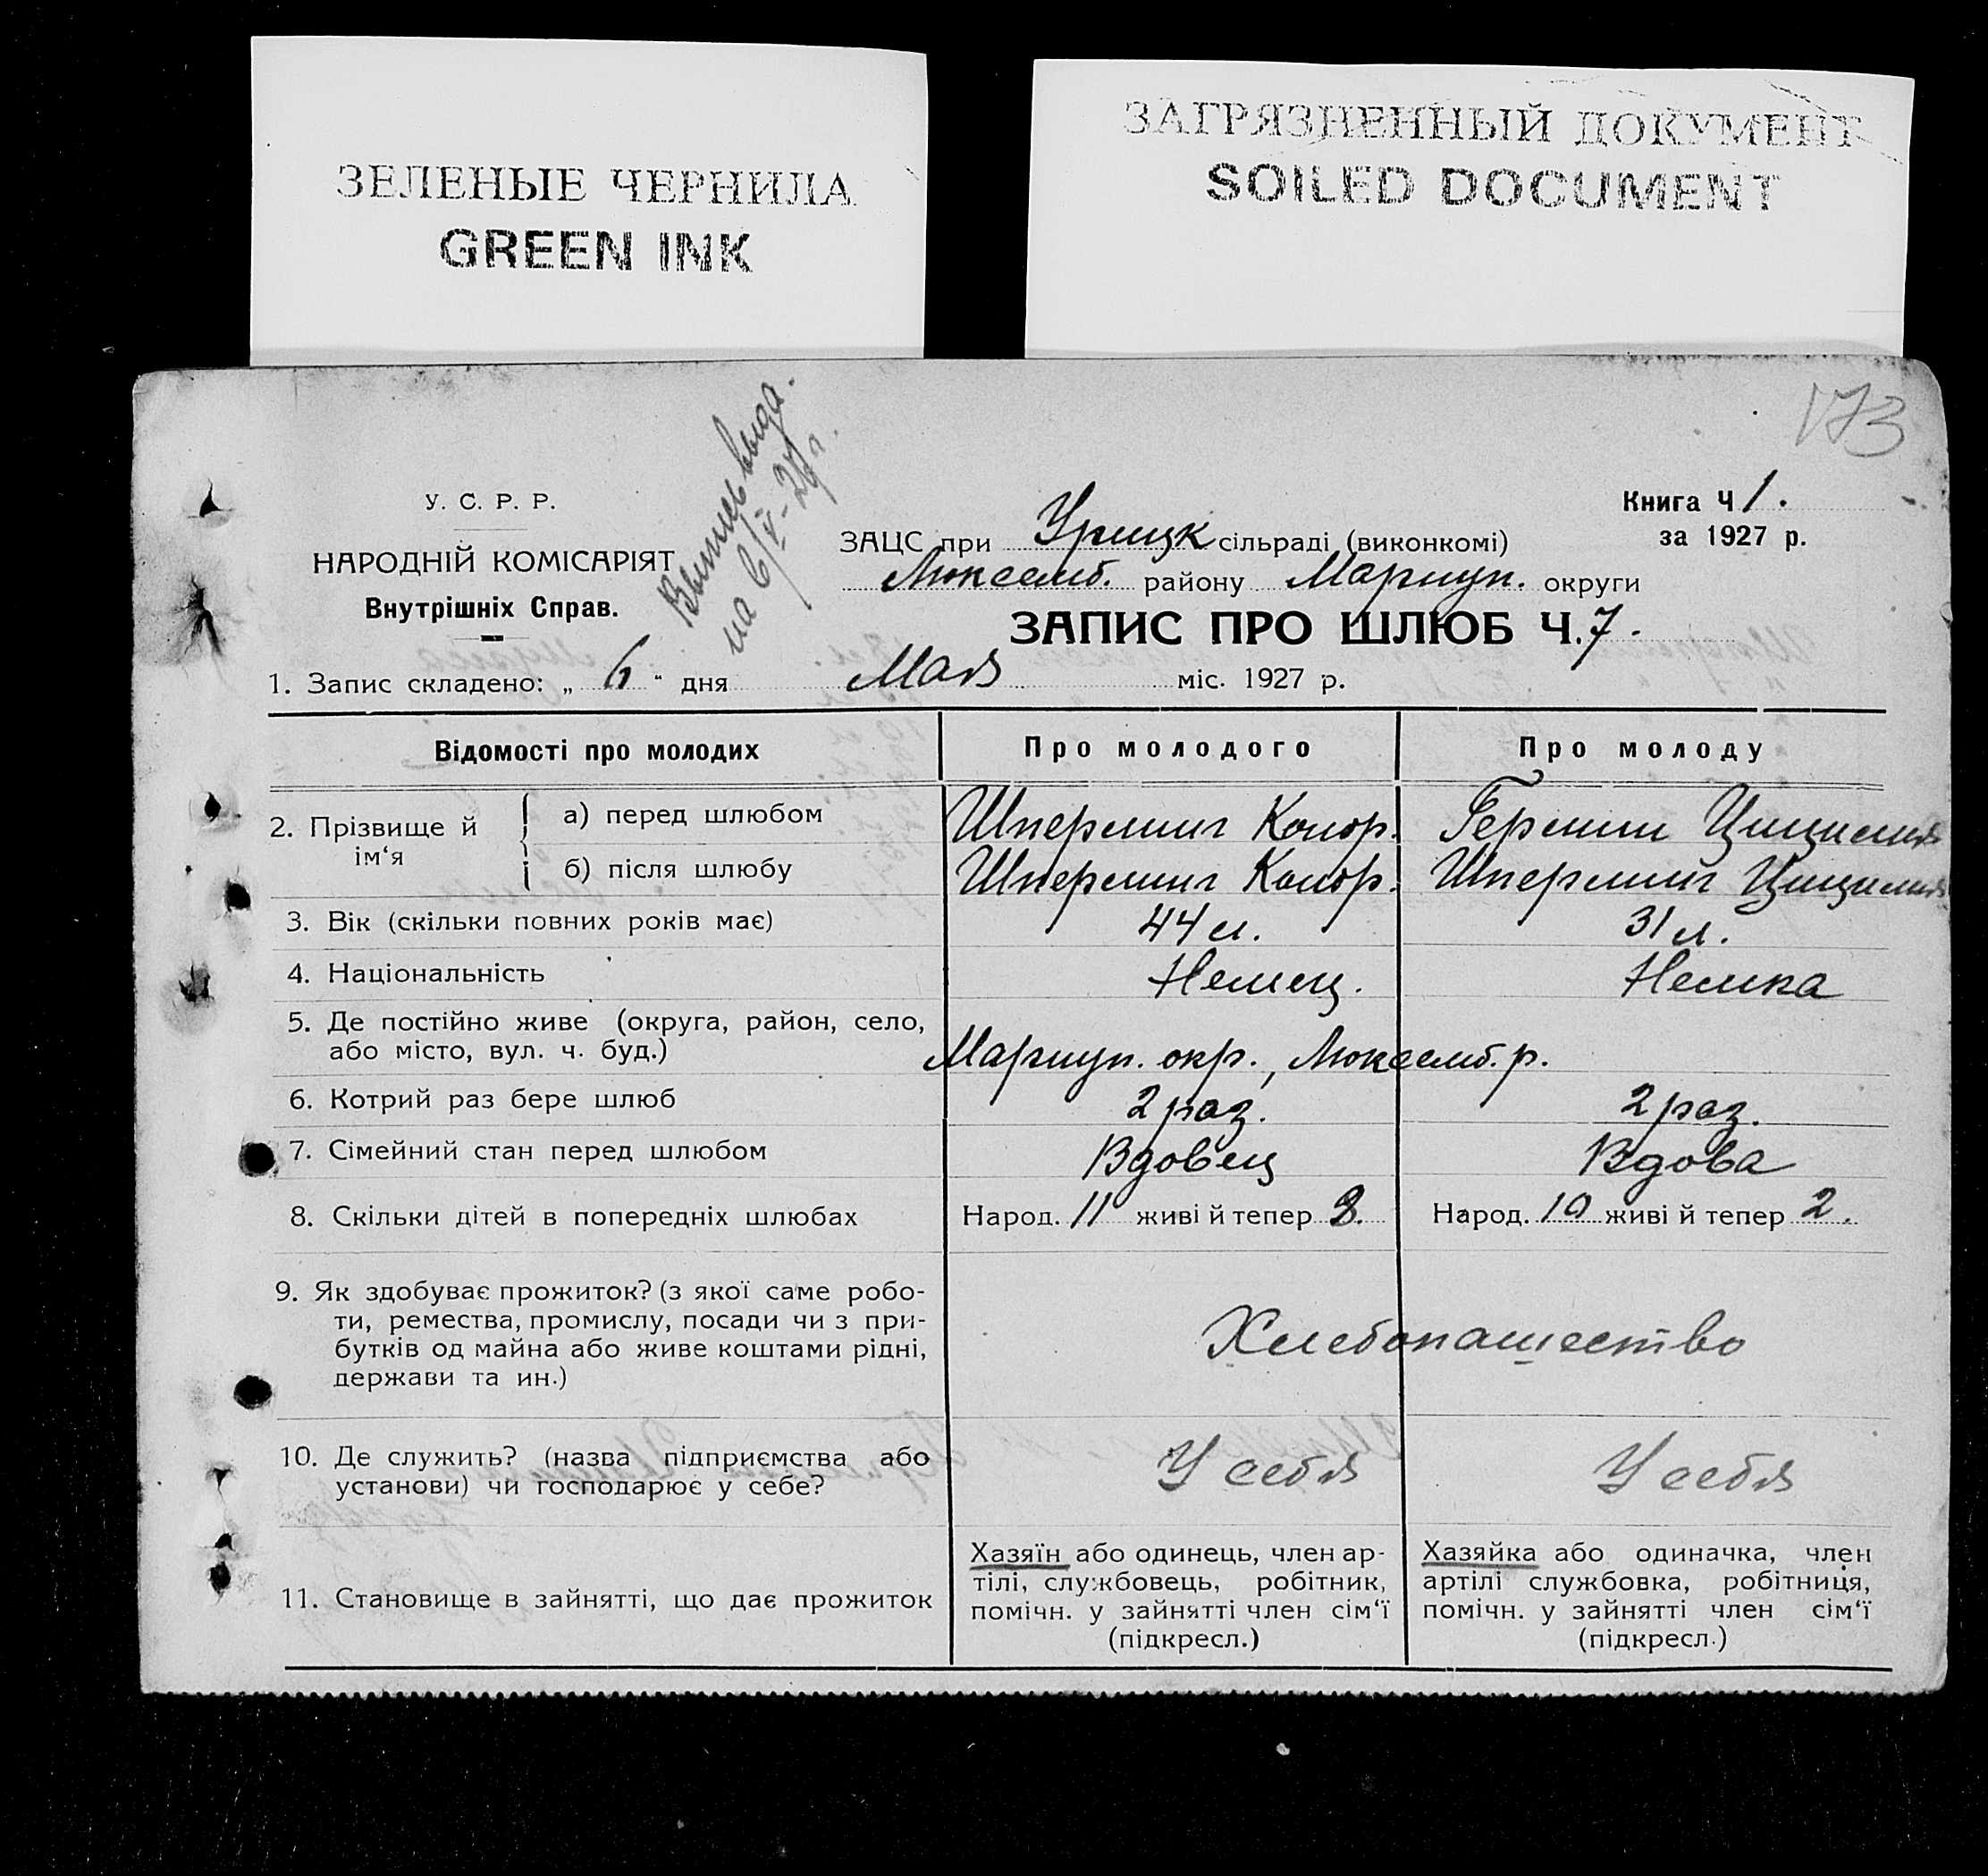 ЗЕЛЕНЫЕ ЧЕРНИЛА
GREEN INK
ЗАГРЯЗНЕННЫЙ ДОКУМЕНТ
SOILED DOCUMENT
173
У. С. Р. Р.
НАРОДНІЙ КОМІСАРІЯТ
Внутрішніх Справ.
на 6/V-27 г.
Книга Ч 1.
за 1927 р.
ЗАЦС при Урицк сільраді (виконкомі)
Люксемб. району Мариуп. округи
ЗАПИС ПРО ШЛЮБ Ч. 7.
1. Запис складено: „ 6 " дня Мая міс. 1927 р.
Відомості про молодих Про молодого Про молоду
2. Прізвище й ім‘я
а) перед шлюбом Шперлинг Конор. Герлин Цицилия
б) після шлюбу Шперлинг Конор. Шперлинг Цицилия
3. Вік (скільки повних років має) 44 л. 31 л.
4. Національність Немец. Немка
5. Де постійно живе (округа, район, село,
або місто, вул. ч. буд.) Мариуп. окр., Люксемб. р.
6. Котрий раз бере шлюб 2 раз. 2 раз.
7. Сімейний стан перед шлюбом Вдовец Вдова
8. Скільки дітей в попередніх шлюбах Народ. 11 живі й тепер 8. Народ. 10 живі й тепер 2.
9. Як здобуває прожиток? (з якої саме робо-
ти, ремества, промислу, посади чи з при-
бутків од майна або живе коштами рідні,
держави та ин.)
Хлебопашество
10. Де служить? (назва підприємства або
установи) чи господарює у себе?
У себя У себя
11. Становище в зайнятті, що дає прожиток
Хазяїн або одинець, член ар-
тілі, службовець, робітник,
помічн. у зайнятті член сім‘ї
(підкресл.)
Хазяйка або одиначка, член
артілі службовка, робітниця,
помічн. у зайнятті член сім‘ї
(підкресл.)